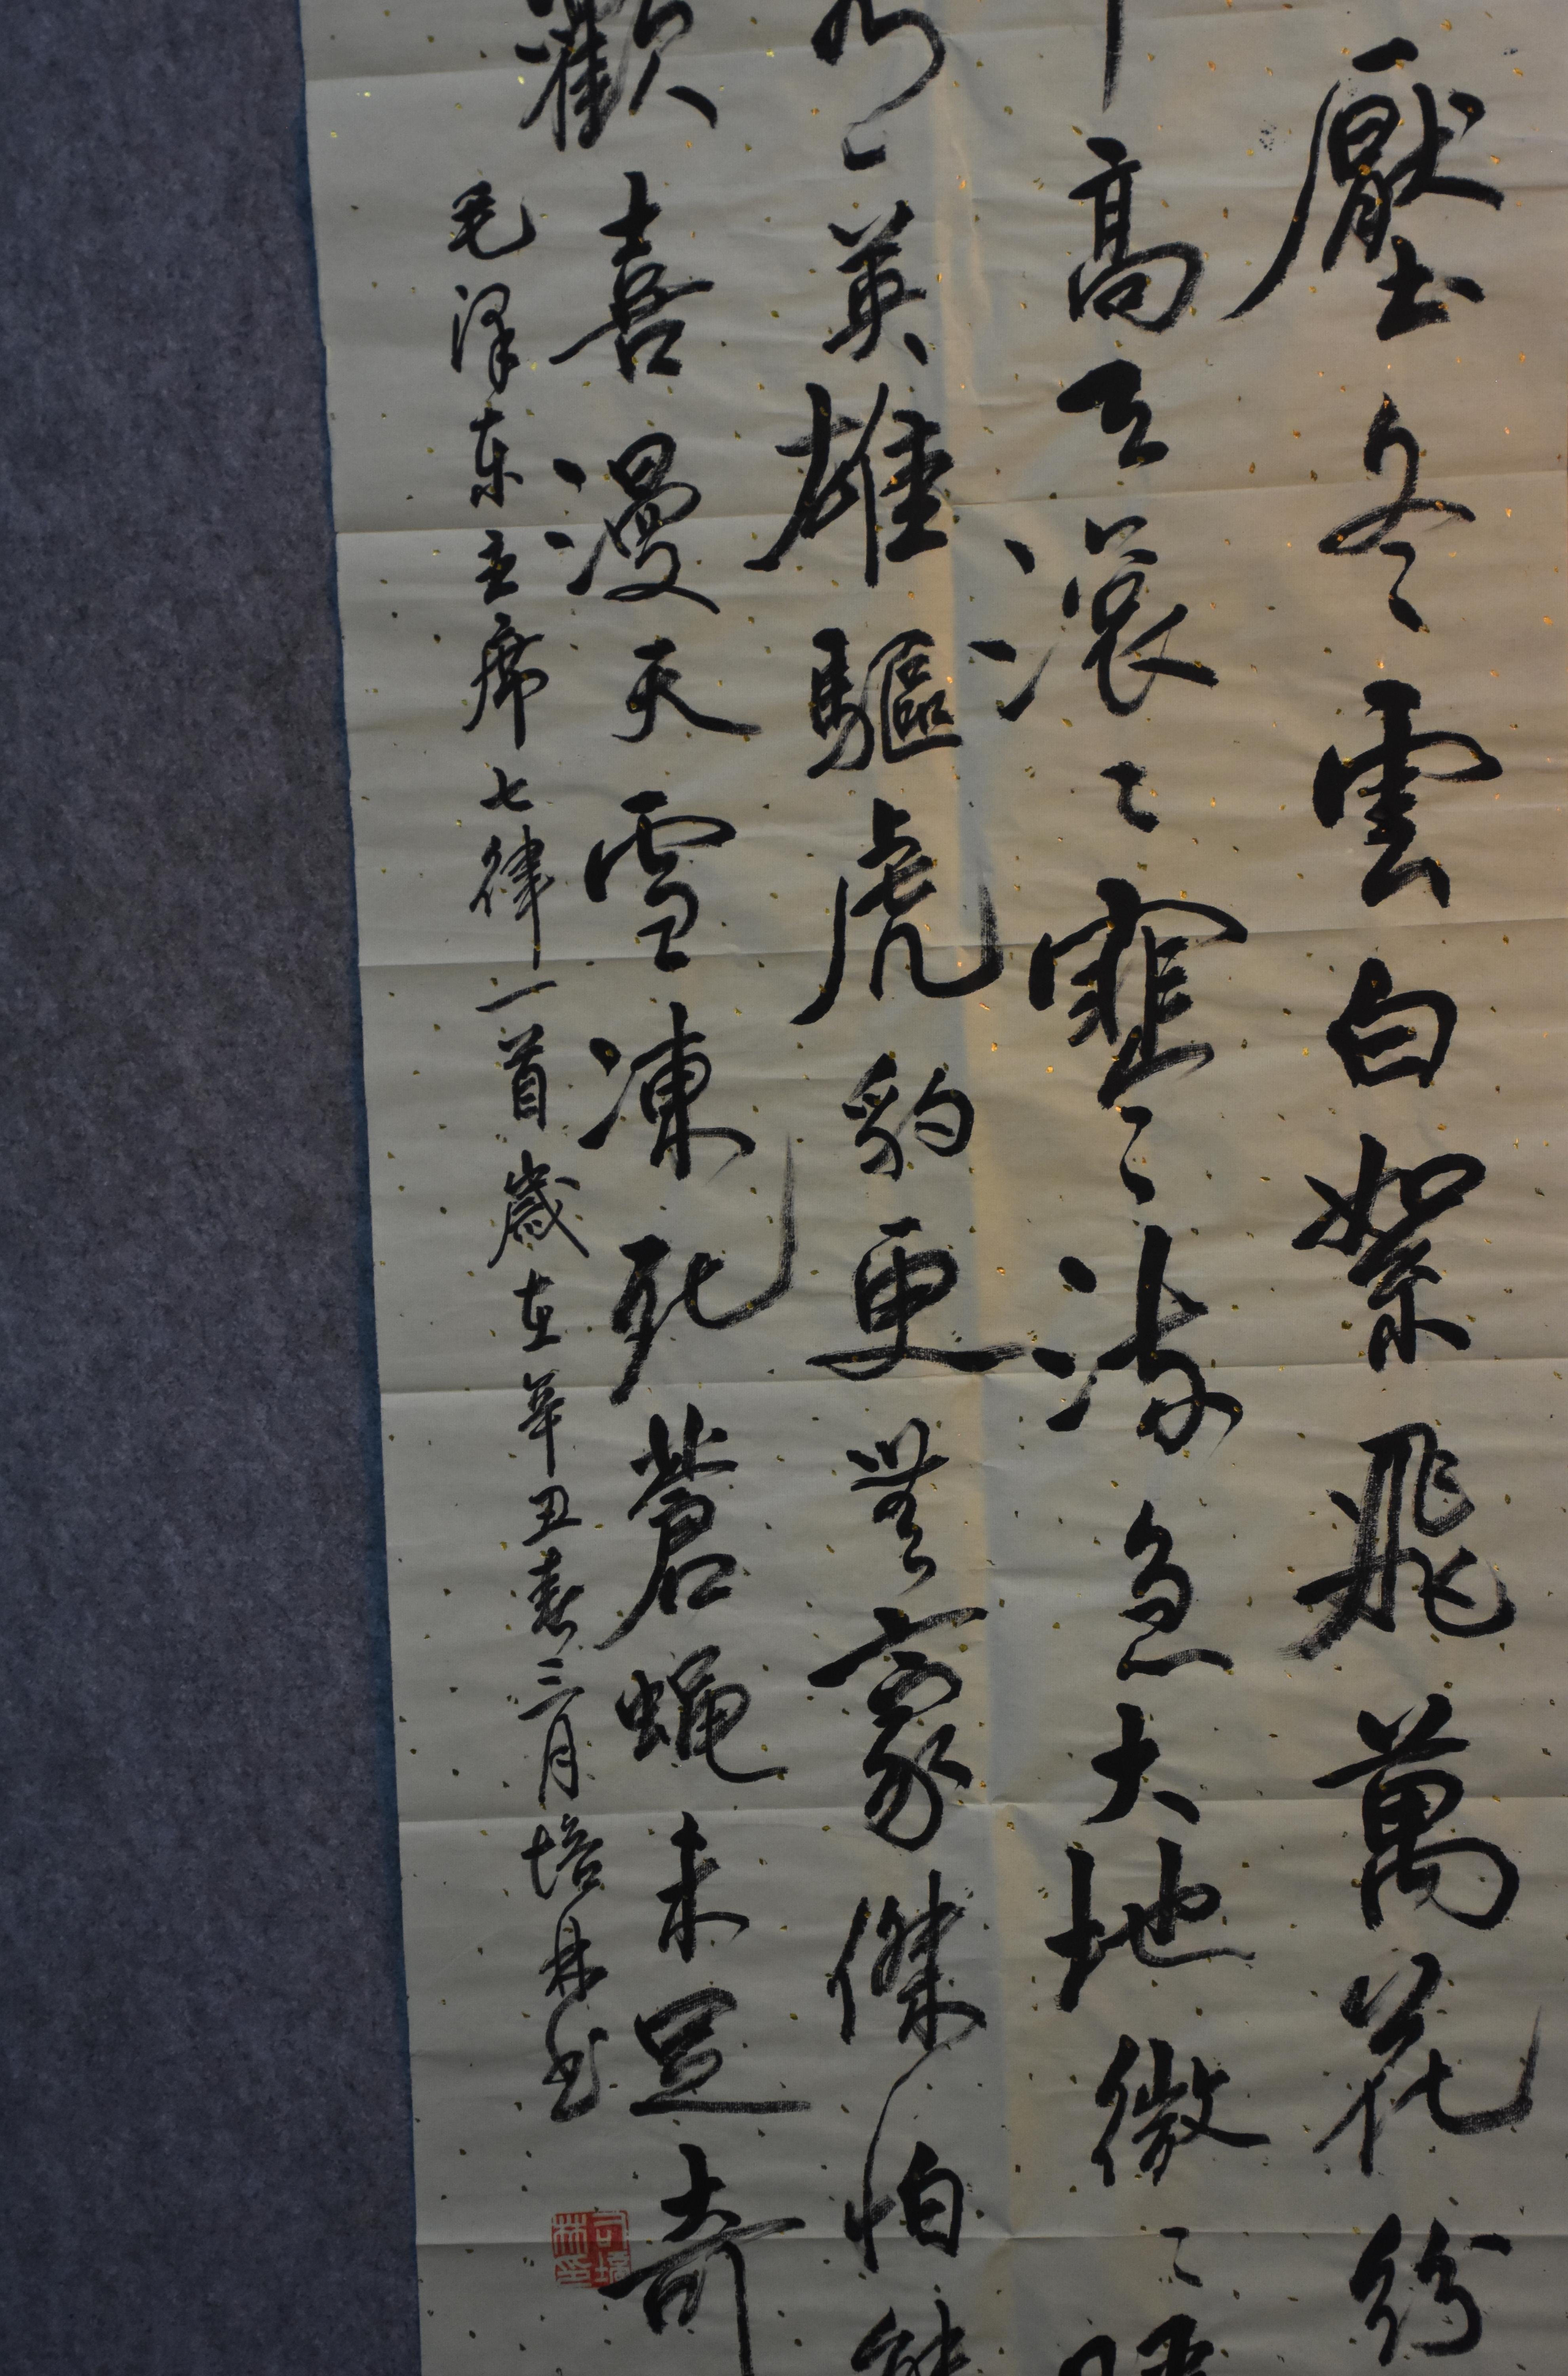 壓冬雲白絮飛萬花紛
高天滚〻寒流急大地微〻暖
有英雄驅虎豹更無豪傑怕熊
歡喜漫天雪凍死蒼蝇未足奇
毛泽东主席七律一首歲在辛丑春三月培林书
司培林印